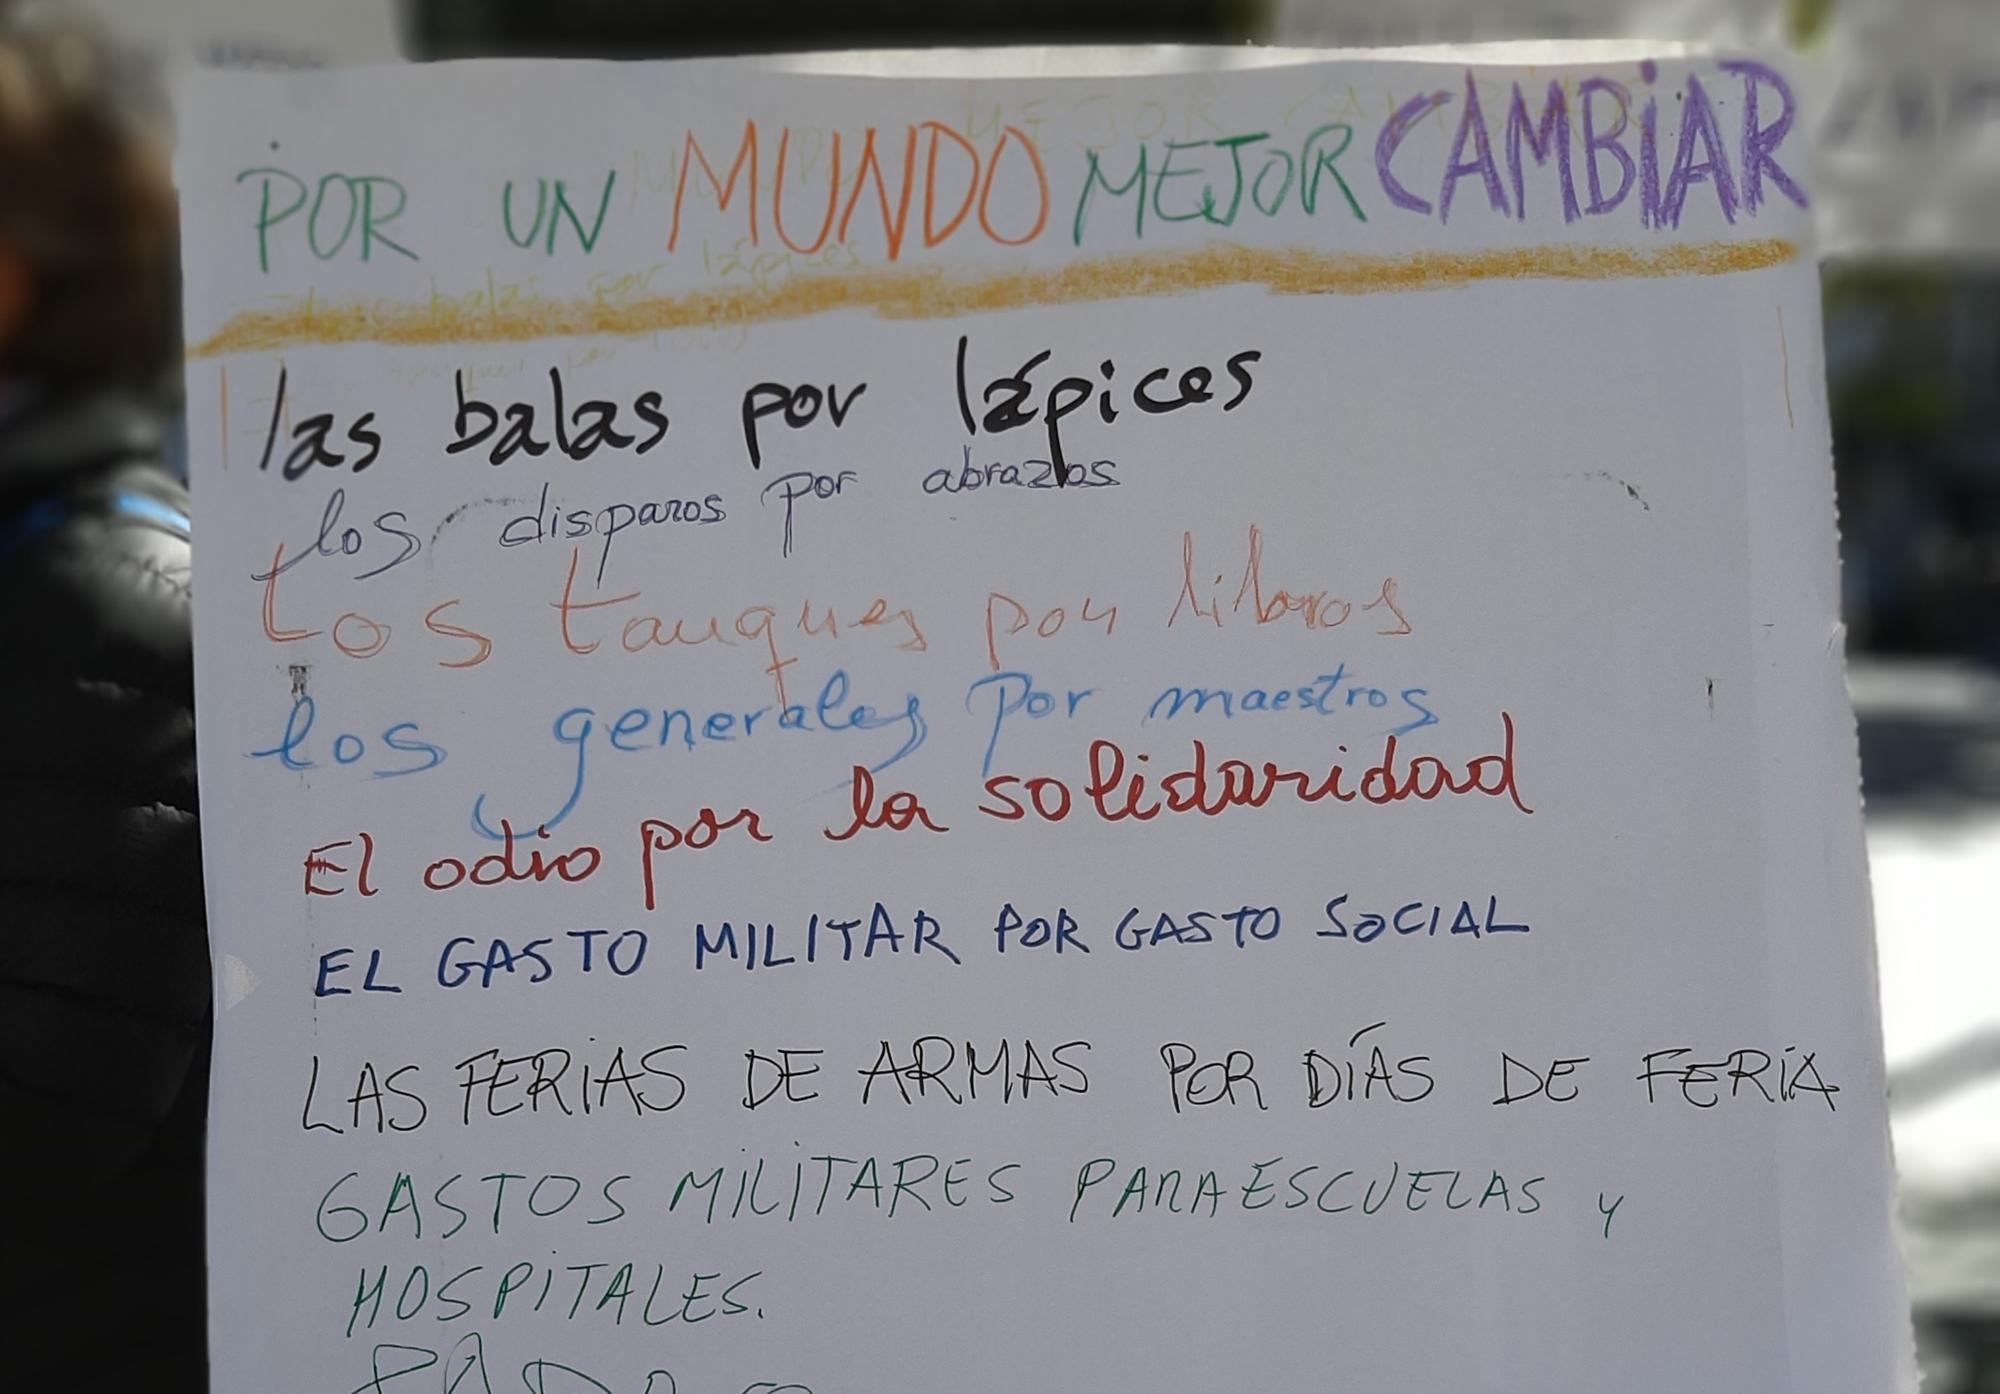 POR UN MUNDO MEJOR CAMBIAR
las balas por lápices
los disparos por abrazos
Los tanques por libros
los generales por maestros
El odio por la solidaridad
EL GASTO MILITAR POR GASTO SOCIAL
LAS FERIAS DE ARMAS POR DÍAS DE FERIA
GASTOS MILITARES PARA ESCUELAS y
HOSPITALES.